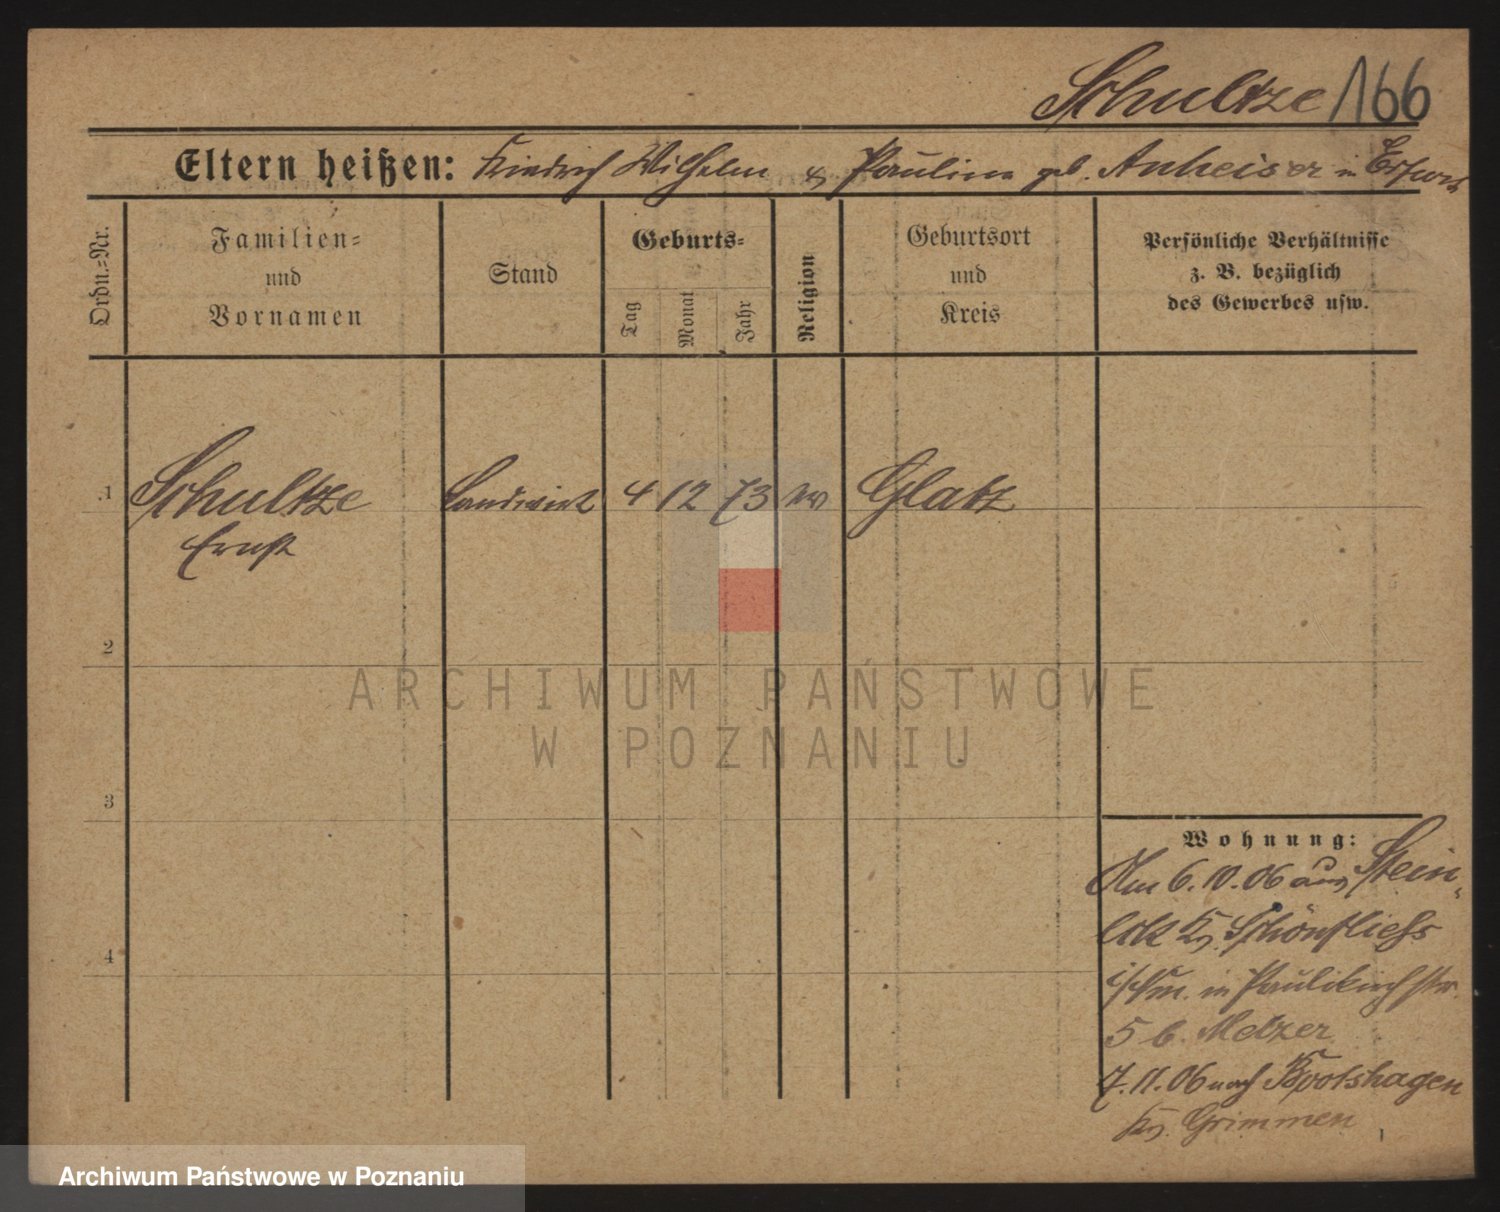 Schultze 166
Eltern heißen: Friedrich Wilhelm & Pauline geb. Anheiser in Erfurt
Ordn.-Nr.
Familien-
und
Vornamen
Stand
Geburts-
Tag
Monat
Jahr
Religion
Geburtsort
und
Kreis
Persönliche Verhältnisse
z. B. bezüglich
des Gewerbes usw.
1 Schultze Landwirt 4 12 73 ev Glatz
Ernst
2
3
4
Wohnung:
Am 6.10.06 aus Stein-
Kr. Schönfliess
in Paulikirchstr.
5 b. Melzer
7.11.06 nach Bootshagen
Kr. Grimmen
ARCHIWUM PAŃSTWOWE
W POZNANIU
Archiwum Państwowe w Poznaniu